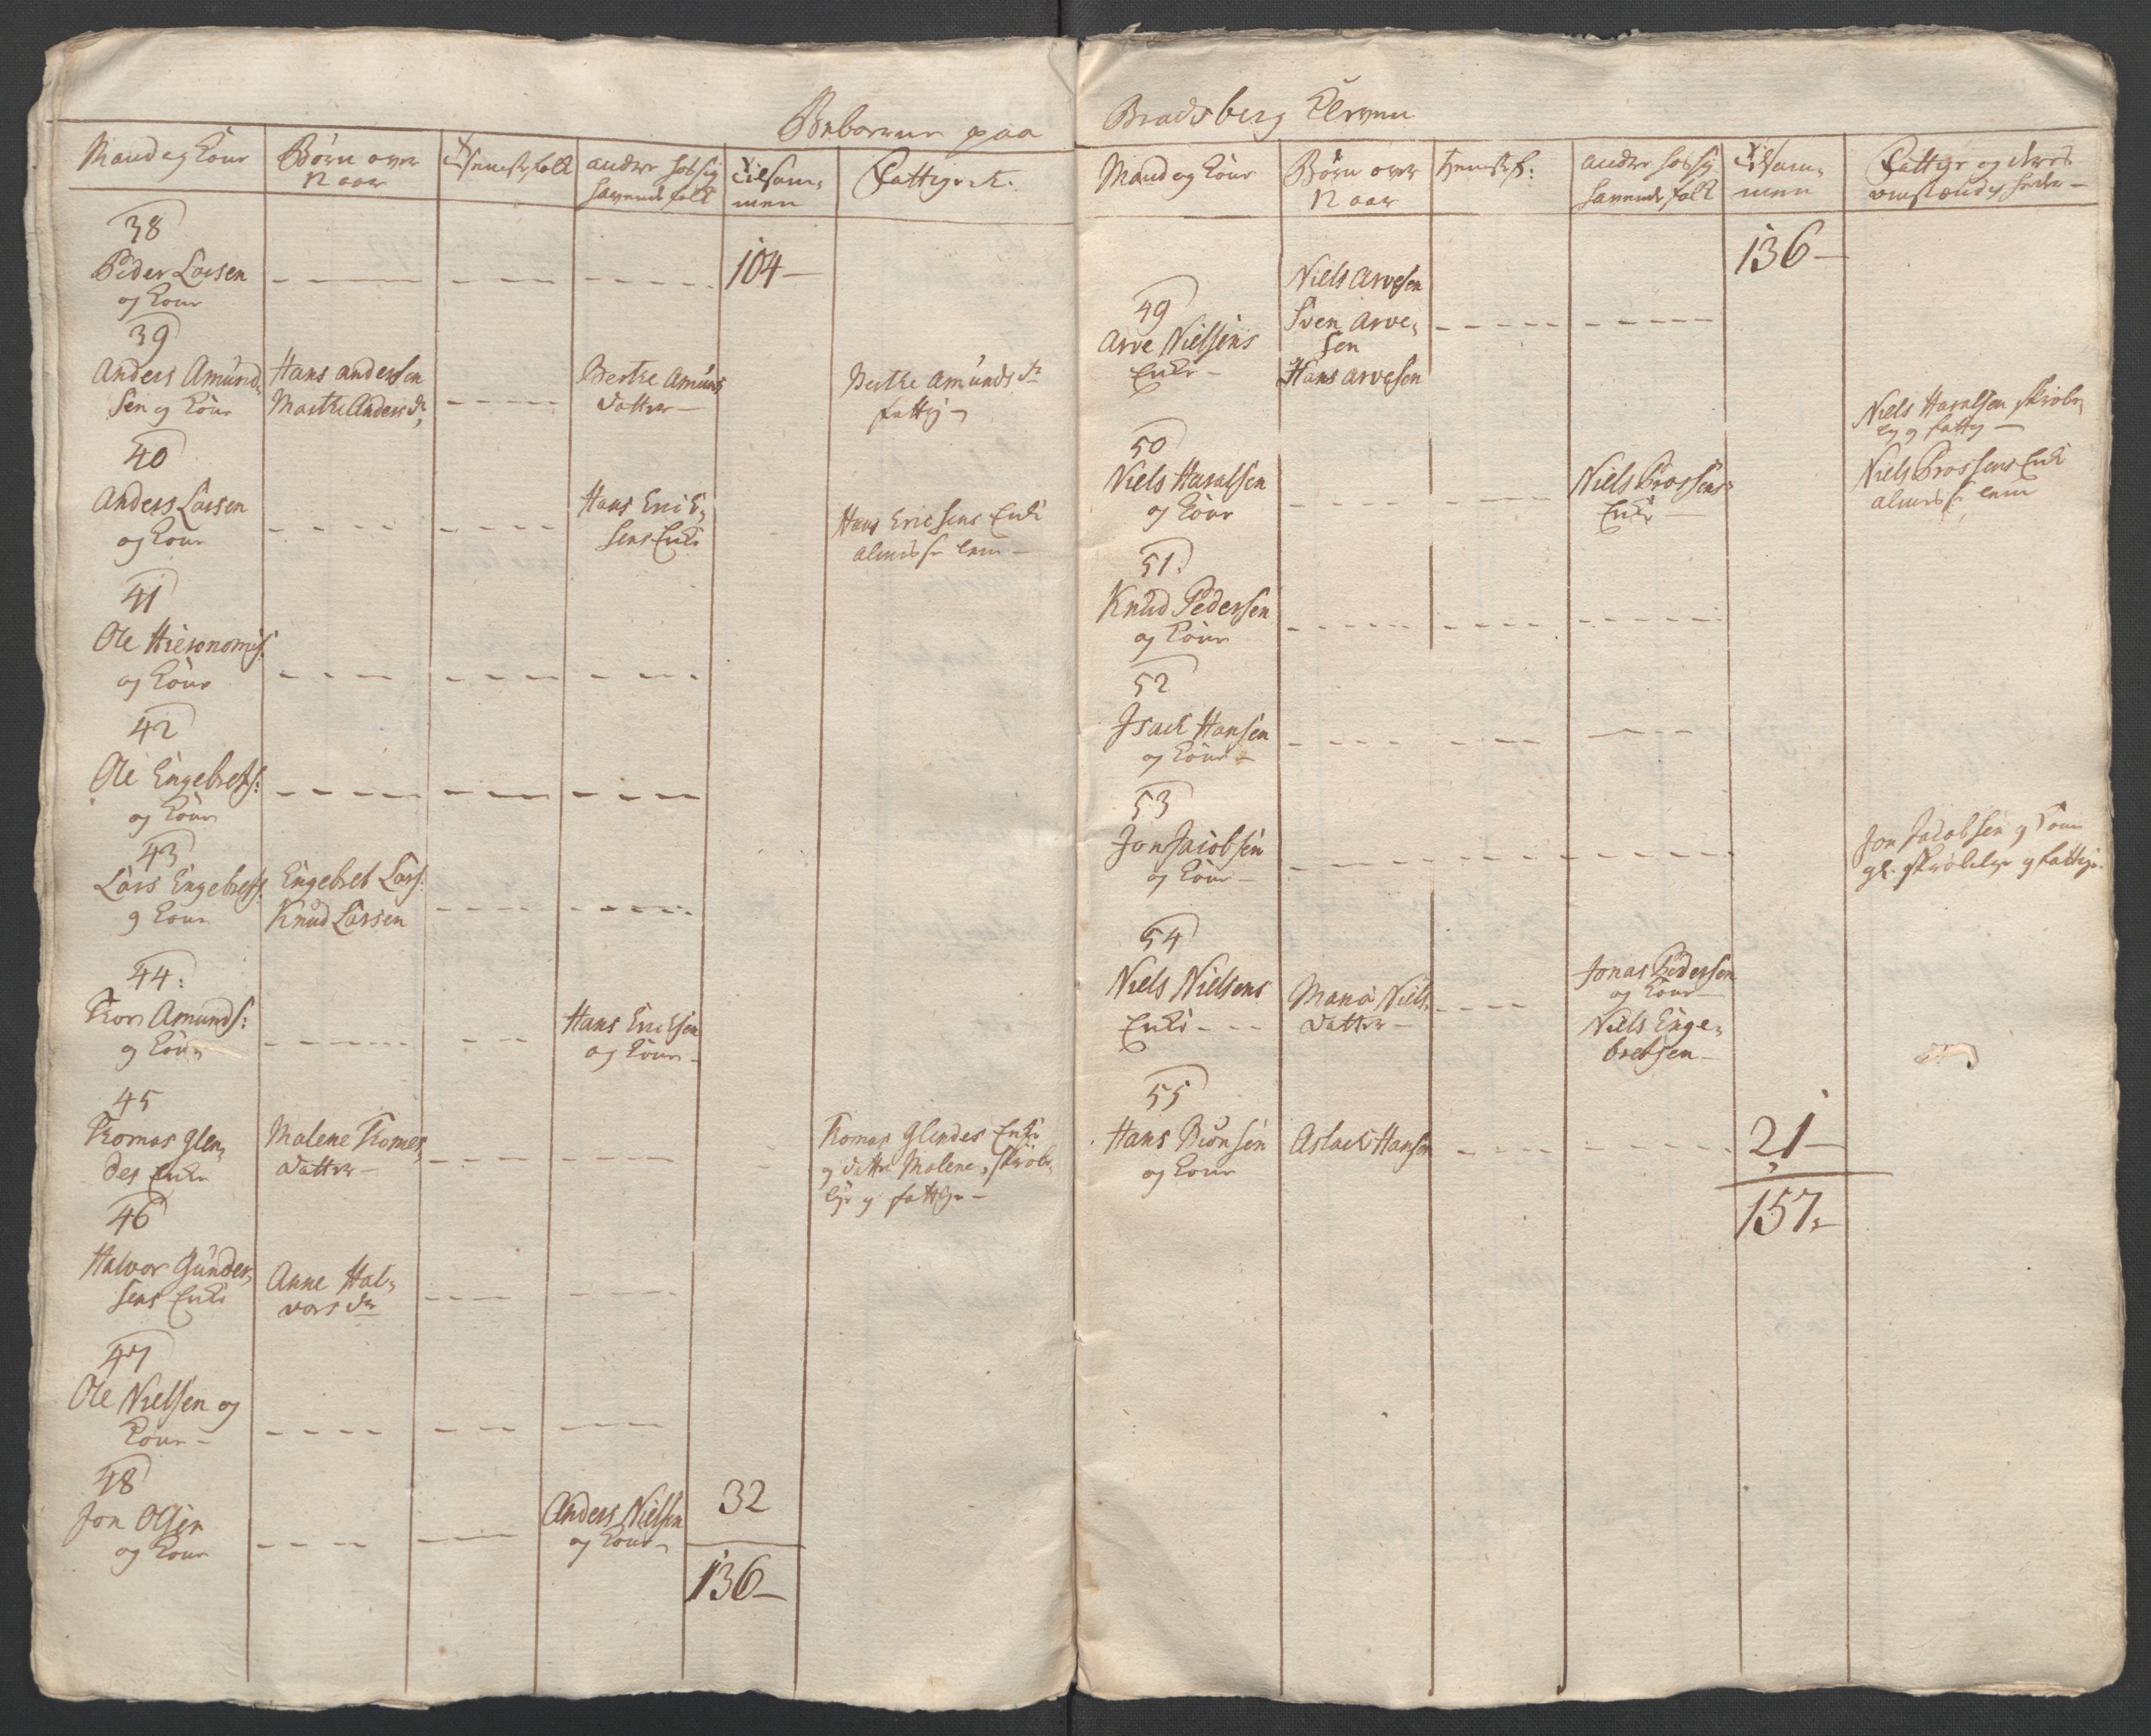 Beboerne paa
Mand og Kone
Børn over
12 aar
Tienestefolk
andre hos sig
havende folk
Tilsam,
men
Fattige etc:
38
Peder Larsen
og Kone
104 —
39
Anders Amund,
sen og Kone
Hans andersen
Marthe Andersdr,
Berthe Amunds
datter —
Berthe Amundsdr
fattig —
40
Anders Larsen
og Kone
Hans Erick,
sens Enke
Hans Ericsens Enke
almisse lem —
41
Ole Hieronomis:
og Kone
42
Ole Engebrets:
og Kone
43
Lars Engebrets:
og Kone
Engebret Lars:
Knud Larsen
44:
Thor Amunds:
og Kone
Hans Ericksen
og Kone —
45
Thomas Glen,
des Enke
Malene Thomes,
datter —
Thomas Glendes Enke
og datter Malene, skrøbe,
lige og fattige —
46
Halvor Gunder,
sens Enke
Anne Hal,
vorsdr
47
Ole Nielsen og
Kone —
48
Jon Olsen
og Kone
Anders Nielsen
og Kone
32
136 —
Bradsberg Elven
Mand og Kone
Børn over
12 aar
tienestef:
andre hos sig
havende folk
Tilsam,
men
Fattige og deres
omstændigheder —
136 —
49
Arve Nielsens
Enke —
Niels Arvesen
Sven Arve,
sen
Hans Arvesen
50
Niels Haralsen
og Kone
Niels Brossens
Enke
Niels Haralsen skrøbe,
lig og fattig —
Niels Brossens Enke
almisse lem
51.
Knud Pedersen
og Kone
52
Isach Hansen
og Kone —
53
Jon Jacobsen
og Kone —
Jon Jacobsen og Kone
gl. skrøbelige og fattige.
54
Niels Nielsens
Enke
Maria Niels,
datter —
Jonas Pedersen
og Kone —
Niels Enge,
bretsen —
55
Hans Biønsen
og Kone
Aslach Hansen
21 —
157 —